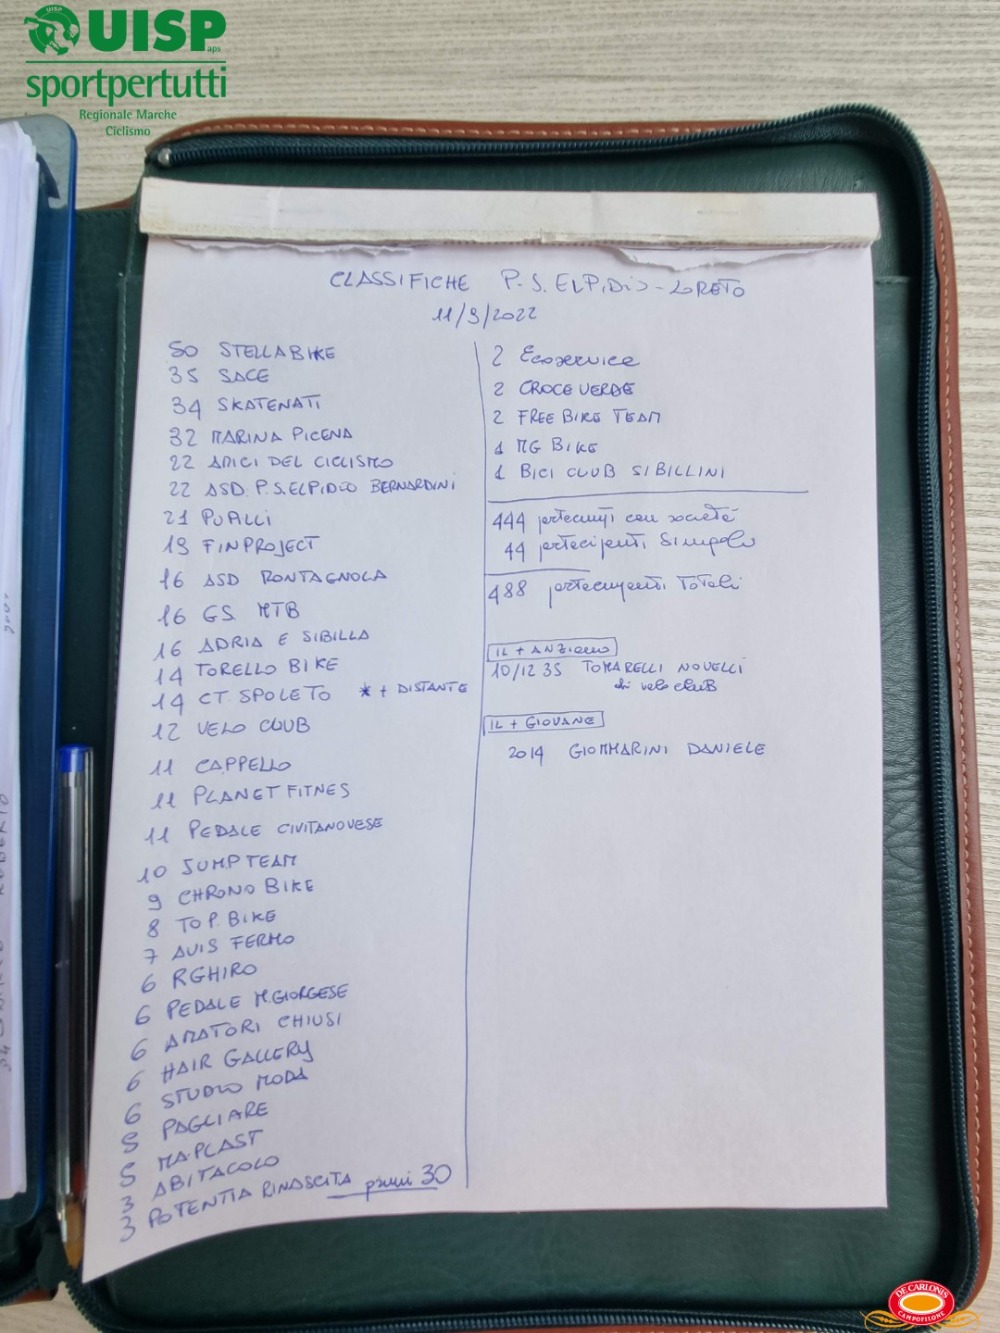 UISP
aps
sportpertutti
Regionale Marche
Ciclismo
CLASSIFICHE P.S.ELPIDIO-LORETO
11/9/2022
50 STELLABIKE
35 SACE
34 SKATENATI
32 MARINA PICENA
22 AMICI DEL CICLISMO
22 ASD. P.S.ELPIDIO BERNARDINI
21 PUALLI
19 FINPROJECT
16 ASD RONTAGNOLA
16 GS MTB
16 ADRIA E SIBILLA
14 TORELLO BIKE
14 CT. SPOLETO * + DISTANTE
12 VELO CLUB
11 CAPPELLO
11 PLANET FITNES
11 PEDALE CIVITANOVESE
10 JUMP TEAM
9 CHRONO BIKE
8 TOP. BIKE
7 AVIS FERMO
6 RGHIRO
6 PEDALE M.GIORGESE
6 AMATORI CHIUSI
6 HAIR GALLERY
6 STUDIO MODA
5 PAGLIARE
5 MA.PLAST
3 ABITACOLO
3 POTENTIA RINASCITA primi 30
2 Ecoservice
2 CROCE VERDE
2 FREE BIKE TEAM
1 MG BIKE
1 BICI CLUB SIBILLINI
444 con società
44 partecipenti Singolo
488 Totali
IL + ANZIANO
10/12 35 TOMARELLI NOVELLI
di velo cluB
IL + GIOVANE
2014 GIOMMARINI DANIELE
DE CARLONIS
CAMPOFILONE